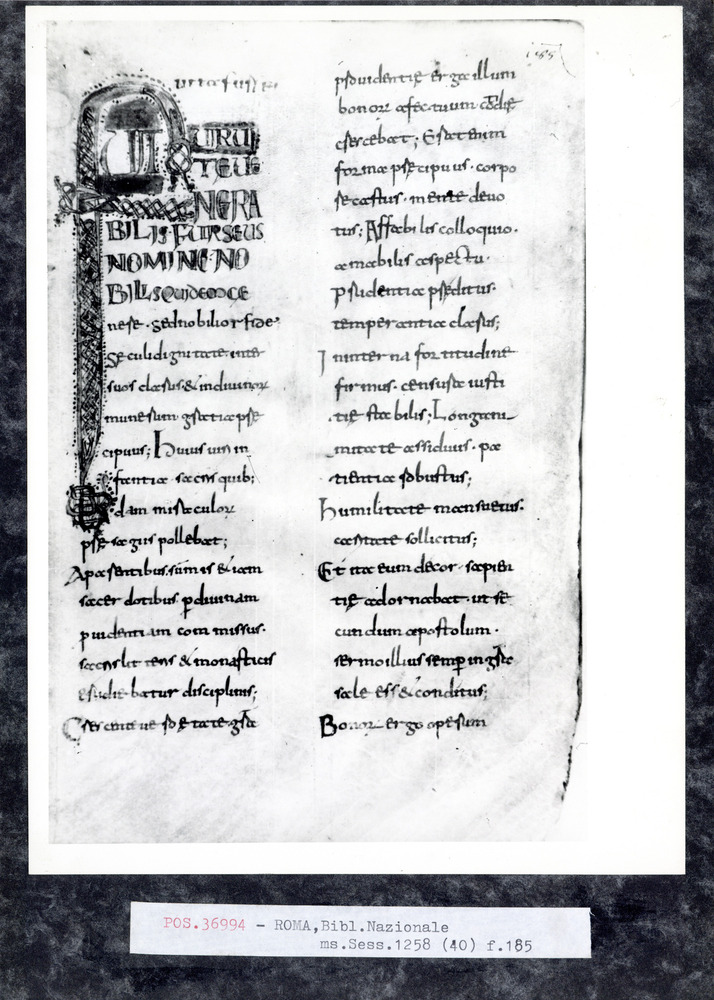 185
FUIT UIR UI
TE UE
NERA
BILIS FURSEUS
NOMINE NO
BILIS QUIDEM GE
nere · sed nobilior fide
seculi dignitate inter
suos clarus & in diuinor
munerum gratia pre
cipuus; Huius uiri in
fantia sacris quib;
dam miraculor
presagiis pollebat;
A parentibus sumis & iam
sacer dotibus p diuinam
puidentiam commissus ·
sacris litteris & monasticis
erudiebatur disciplinis;
Crescente uero etate
prouidentie ergo illum
bonor affectuum
crescebat; Erat enim
forma precipuus · corpo
re castus · mente deuo
tus; Affabilis colloquio ·
amabilis aspectu ·
prudentia preditus ·
temperantia clarus;
Interna fortitudine
firmus · censura iusti
tie stabilis; Longani
mitate assiduus · pa
tientia robustus;
humilitate mansuetus ·
caritate sollicitus;
Et ita eum decor · sapien
tie adornabat · ut se
cundum apostolum ·
sermo illius semp in gra
sale ess& conditus;
Bonor ergo operum
POS.36994 - ROMA,Bibl.Nazionale
ms.Sess.1258 (40) f.185